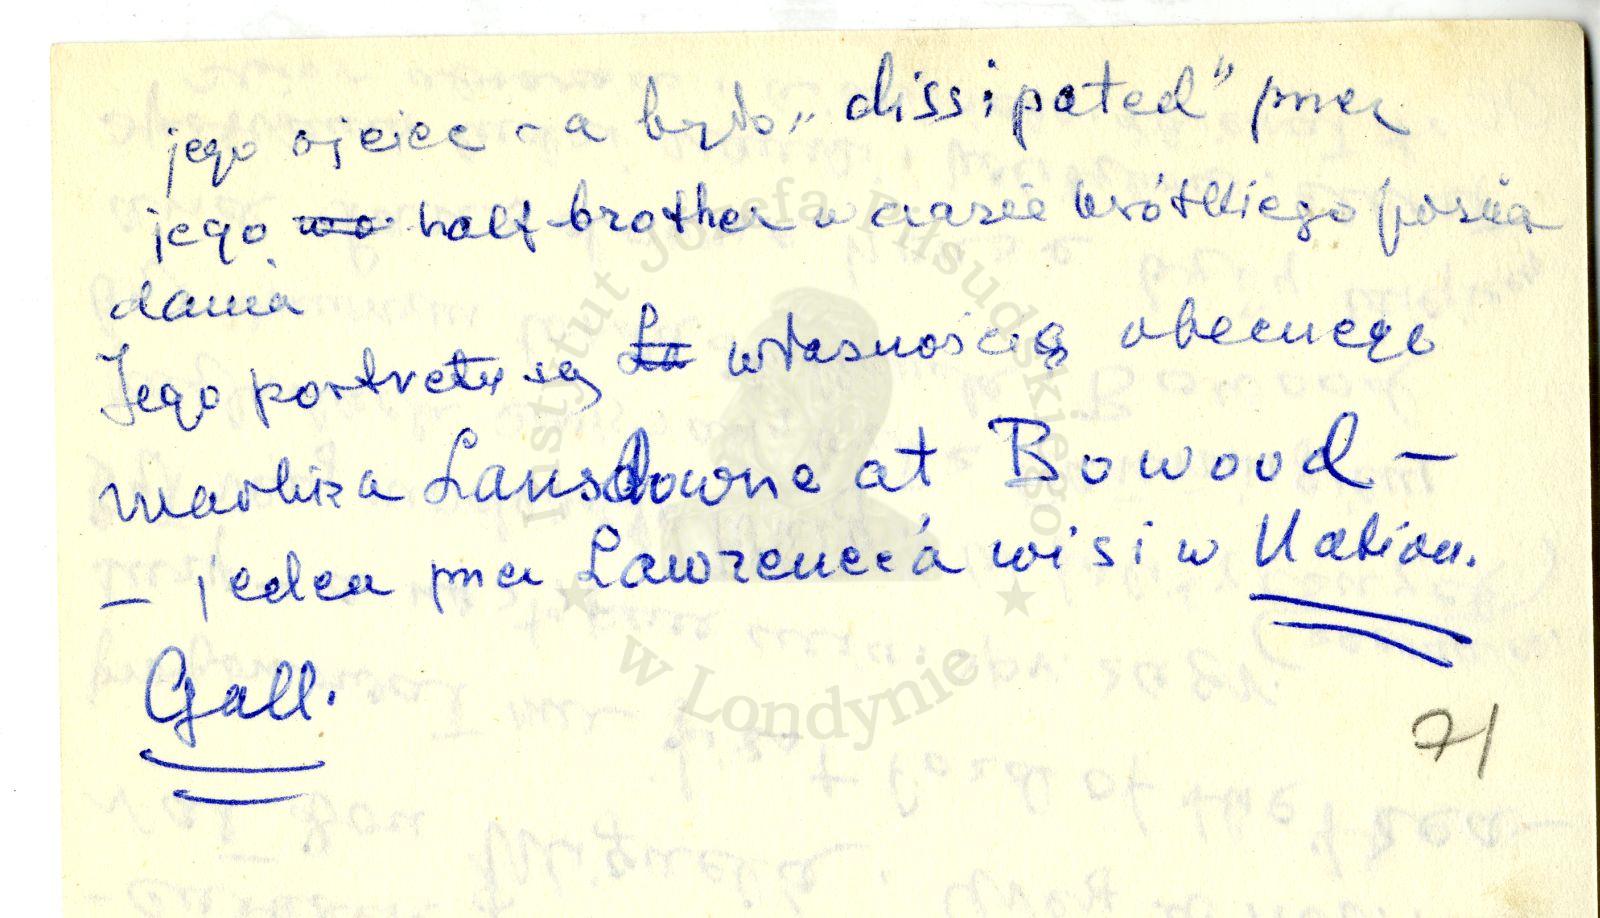 jego ojciec - a było „dissipated” przez
jego half-brother w czasie krótkiego posia
dania
Jego portrety są własnością obecnego
markiza Lansdowne at Bowood -
- jeden przez Lawrence'a wisi w Nation.
Gall.
71
Instytut Józefa Piłsudskiego
w Londynie